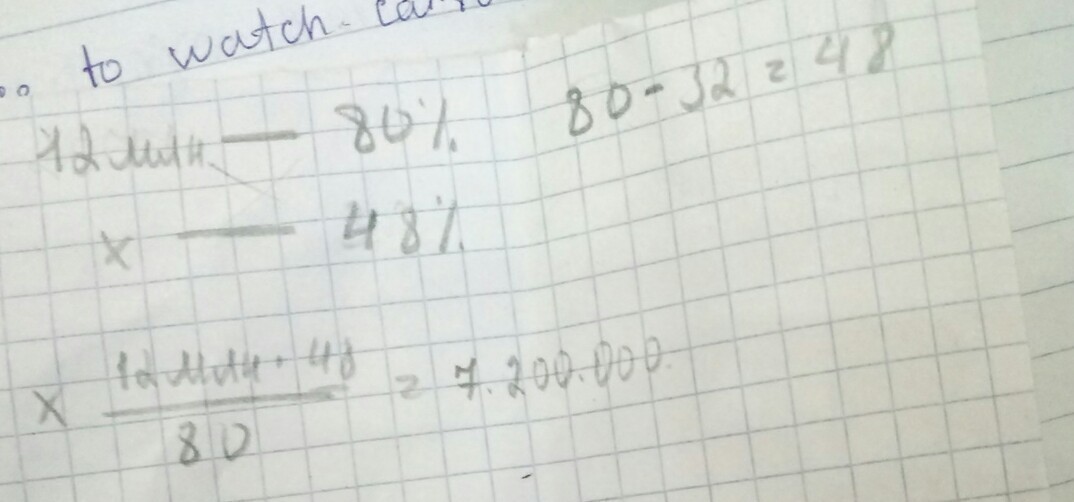 to watch.
80 - 32 = 48
12 млн. — 80%
x — 48%
x 12 млн · 48 / 80 = 7.200.000.